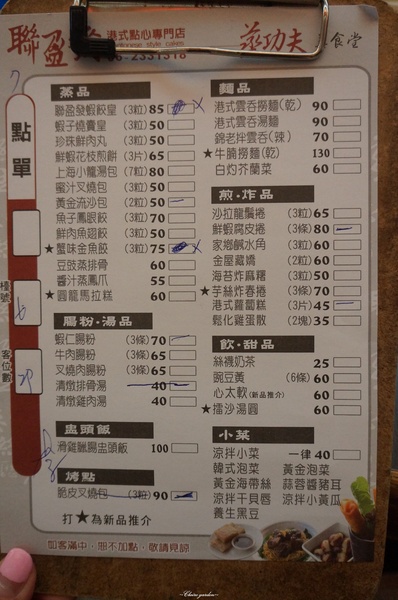 聯盈發
港式點心專門店
茲功夫
食堂
點單
檯號
客位數
蒸品
聯盈發蝦餃皇 (3粒) 85
蝦子燒賣皇 (3粒) 50
珍珠鮮肉丸 (3粒) 50
鮮蝦花枝煎餅 (3片) 65
上海小籠湯包 (7粒) 80
蜜汁叉燒包 (3粒) 50
黃金流沙包 (2粒) 50
魚子鳳眼餃 (3粒) 70
鮮肉魚翅餃 (3粒) 50
★蟹味金魚餃 (3粒) 75
豆豉蒸排骨 60
醬汁蒸鳳爪 55
★圓籠馬拉糕 60
腸粉·湯品
蝦仁腸粉 (3條) 70
牛肉腸粉 (3條) 65
叉燒肉腸粉 (3條) 65
清燉排骨湯 40
清燉雞肉湯 40
盅頭飯
滑雞臘腸盅頭飯 100
烤點
脆皮叉燒包 (3粒) 90
打★為新品推介
麵品
港式雲吞撈麵(乾) 90
港式雲吞湯麵 90
錦老拌雲吞(辣) 70
★牛腩撈麵(乾) 130
白灼芥蘭菜 60
煎·炸品
沙拉龍鬚捲 (3粒) 65
鮮蝦腐皮捲 (3條) 80
家鄉鹹水角 (3粒) 60
金屋藏嬌 (2粒) 60
海苔炸麻糬 (3粒) 50
★芋絲炸春捲 (3條) 70
港式蘿蔔糕 (3片) 45
鬆化雞蛋散 (2塊) 35
飲·甜品
絲襪奶茶 25
豌豆黃 (6條) 60
心太軟(新品推介) 60
★擂沙湯圓 60
小菜
涼拌小菜 一律 40
韓式泡菜 黃金泡菜
黃金海帶絲 蒜蓉醬豬耳
涼拌干貝唇 涼拌小黃瓜
養生黑豆
如客滿中，如不加點，敬請見諒
~Claire garden~